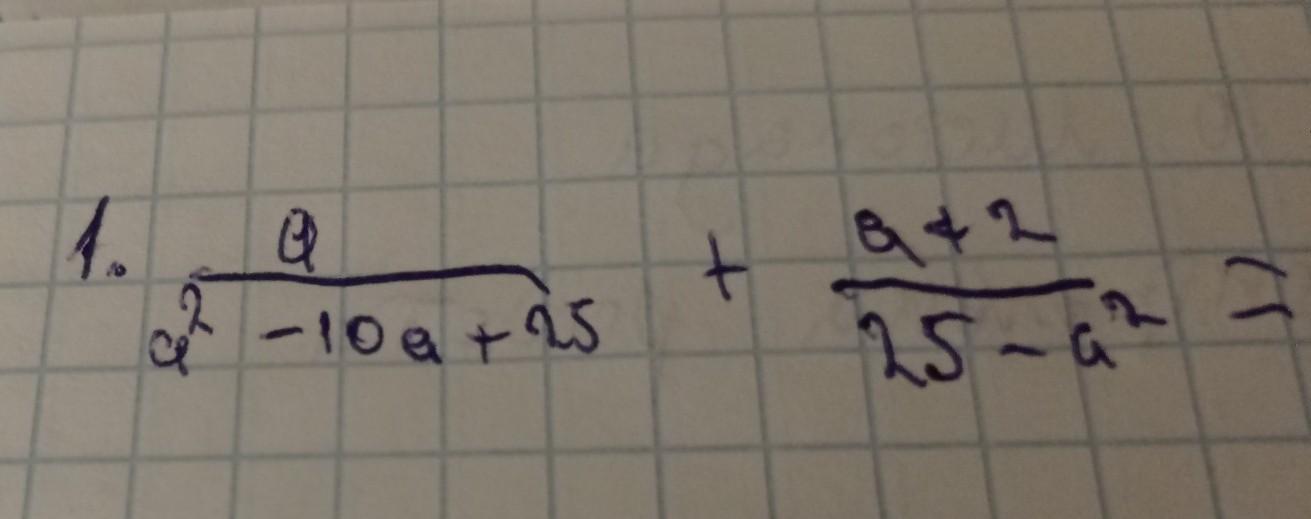 1. a/(a² - 10a + 25) + (a + 2)/(25 - a²) =